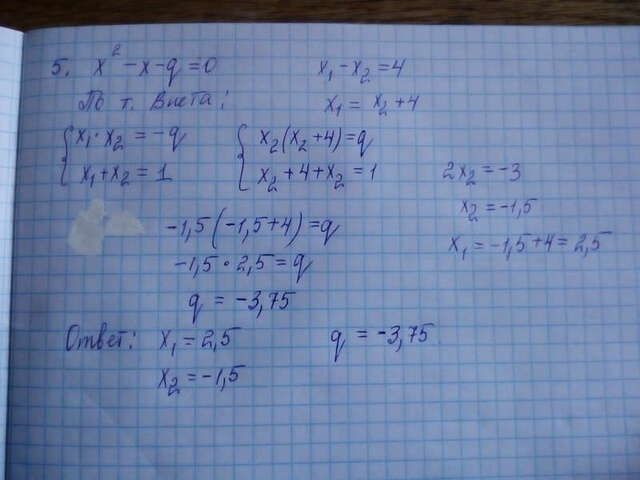 5. x² - x - q = 0
x₁ - x₂ = 4
По т. Виета:
x₁ = x₂ + 4
{x₁ · x₂ = -q
{x₂(x₂+4) = q
x₁ + x₂ = 1
x₂ + 4 + x₂ = 1
2x₂ = -3
x₂ = -1,5
x₁ = -1,5+4 = 2,5
-1,5(-1,5+4) = q
-1,5 · 2,5 = q
q = -3,75
Ответ: x₁ = 2,5 q = -3,75
x₂ = -1,5